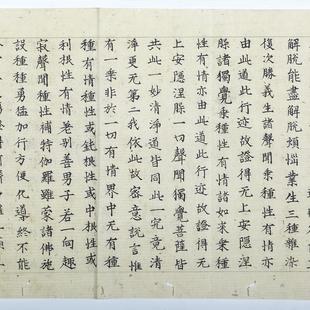 解脫能盡解脫煩惱業生三種雜染
復次勝義生諸聲聞乘種性有情亦
由此道此行迹故證得无上安隱涅
槃諸獨覺乘種性有情諸如來乘種
性有情亦由此道此行迹故證得无
上安隱涅槃一切聲聞獨覺菩薩皆
共此一妙清淨道皆同此一究竟清
淨更无第二我依此故密意說言惟
有一乘非於一切有情界中无有種
種有情種性或鈍根性或中根性或
利根性有情差別善男子若一向趣
寂聲聞種性補特伽羅雖蒙諸佛施
設種種勇猛加行方便化導終不能